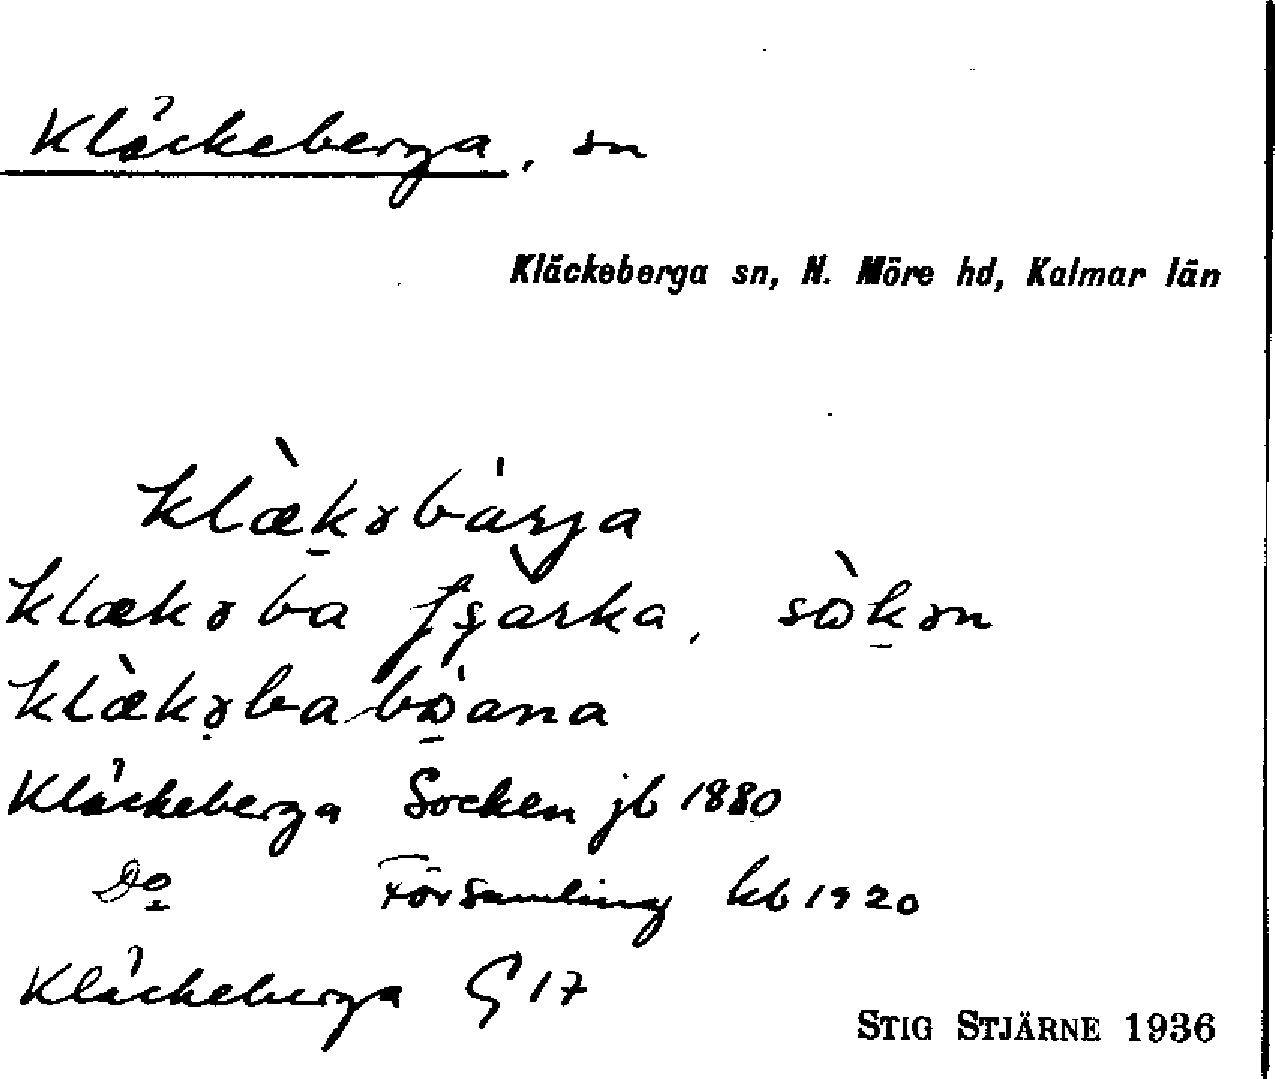 Kläckeberga, sn
Kläckeberga sn, N. Möre hd, Kalmar län
klæ̀kəbárja
sòkən
Kläckeberga Socken jb 1880
Do Församling kb 1920
Kläckeberga G 17
STIG STJÄRNE 1936